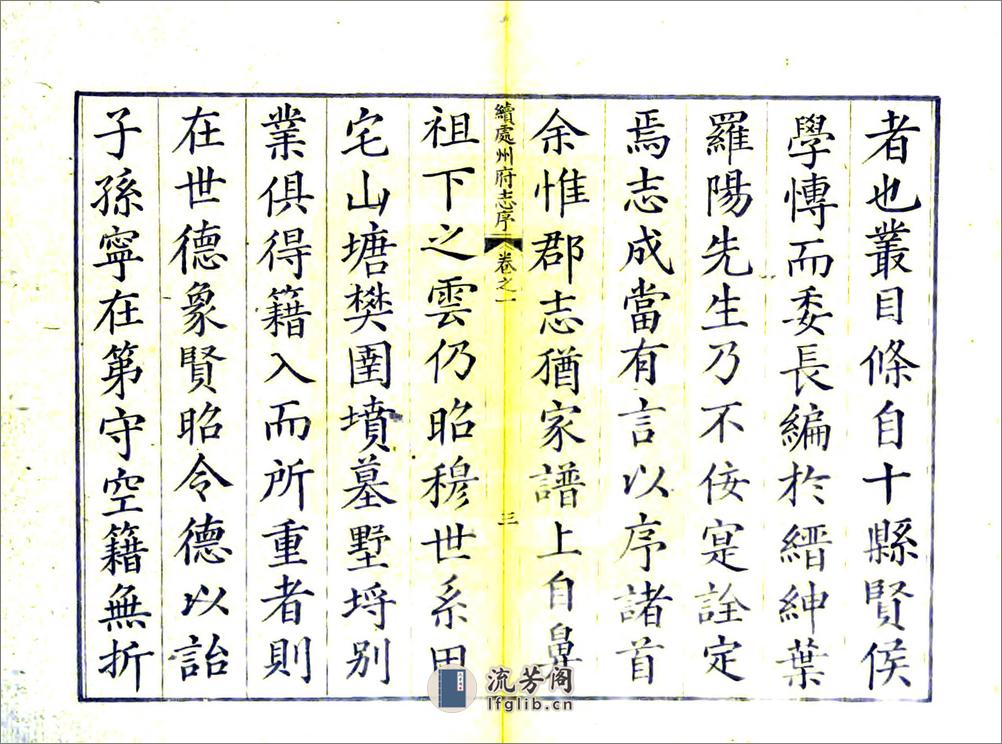 者也叢目條自十縣賢侯
學慱而委長編於縉紳葉
羅陽先生乃不佞寔詮定
焉志成當有言以序諸首
余惟郡志猶家譜上自鼻
續處州府志序 卷之一 三
祖下之雲仍昭穆世系田
宅山塘樊圉墳墓墅埒別
業俱得籍入而所重者則
在世德象賢昭令德以詒
子孫寧在第守空籍無折
流芳阁
lfglib.cn